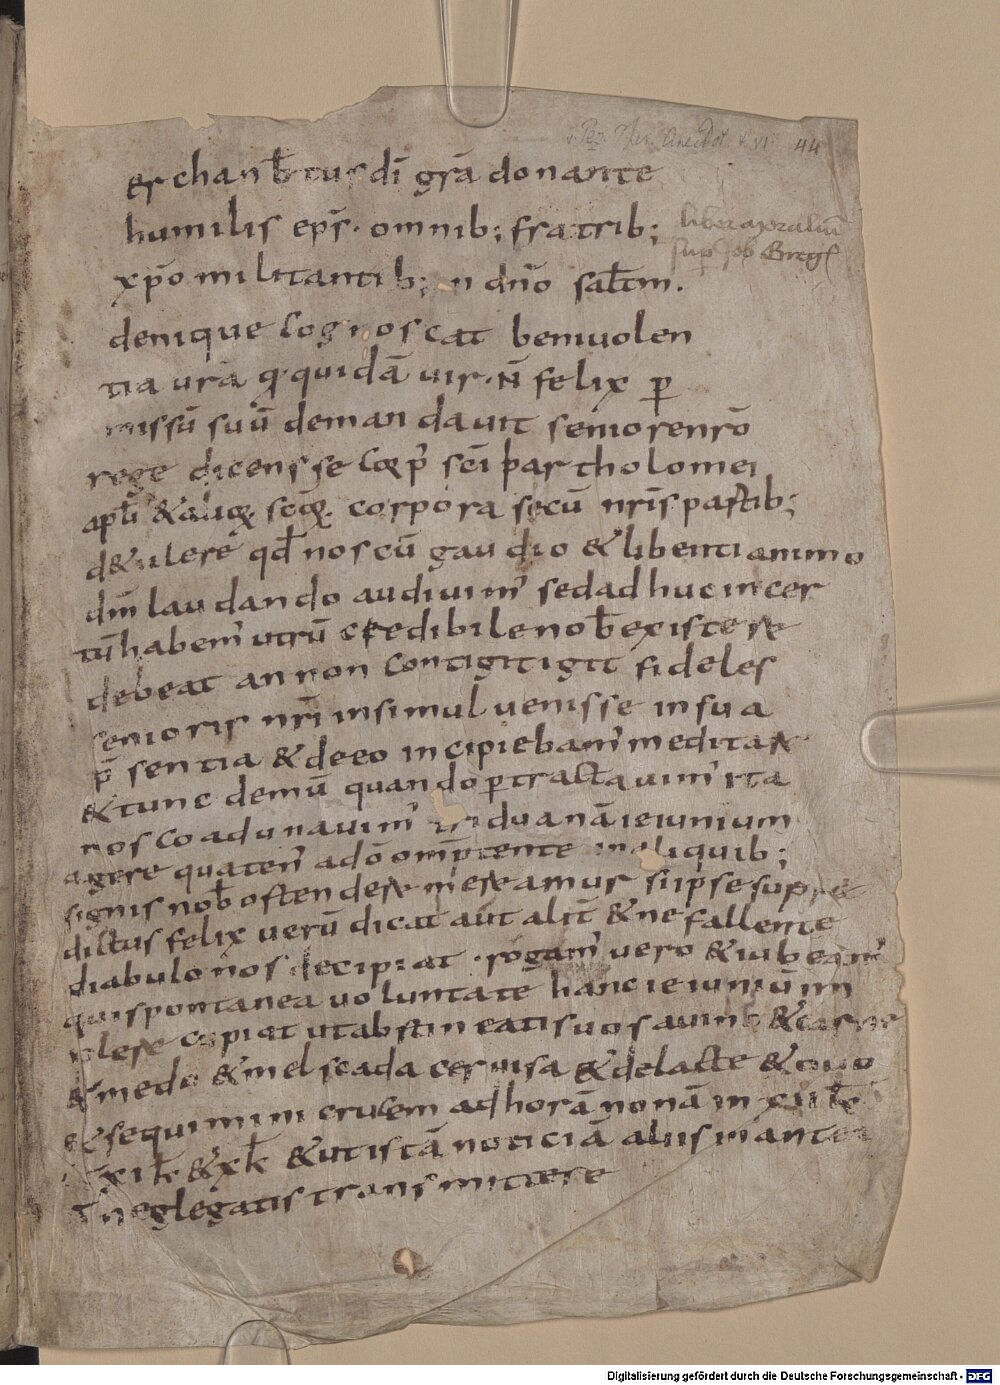 v. Pez. Thes. Anecdot. t. VI 44
erchanb̄tus dī gr̄a donante
humilis ep̄s. omnib; fratrib;
liber moraliū
sup Job Greg
xp̄o militantib; in dn̄o sal̄tm.
denique cognoscat beniuolen
tia ur̄a q quidā uir. N̄ felix p
missū suū demandauit seniore nr̄o
rege dicens se coep̄ sc̄i partholomei
apl̄i & alioꝝ scōꝝ. corpora secū nr̄is partib;
d&ulere qd̄ nos cū gaudio & libenti animo
dm̄ laudando audiuim' sed adhuc incer
tū habem' utrū credibile nob̄ existere
debeat an non contigit igit fideles
senioris nr̄i insimul uenisse in sua
p̄sentia & de eo incipiebam' meditare
& tunc demū quando ptractauim' ita
nos coadunauim' triduanā ieiunium
agere quaten' ad ō omp̄tente in aliquib;
signis nob̄ ostendere mereamur si ipse supra
dictus felix uerū dicat aut alit̄ & ne fallente
diabulo nos decipiat. rogam' uero & iubeam'
qui spontanea uoluntate hanc ieiuniū im
plere cupiat ut abstineatis uos a uino & carne
& medo & mel scada ceruisa & de lacte & ouo
& sequimini crucem ad horā nonā in xii kł
xi kł & x kł & ut istā noticiā aliis in ante
neglegatis transmittere
Digitalisierung gefördert durch die Deutsche Forschungsgemeinschaft - DFG